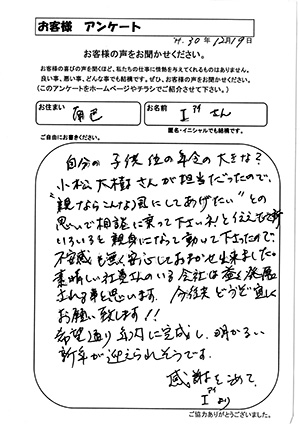 お客様 アンケート
H.30年12月19日
お客様の声をお聞かせください。
お客様の喜びの声を聞くほど、私たちの仕事に情熱を与えてくれるものはありません。
良い事、悪い事、どんな事でも結構です。ぜひ、お客様の声をお聞かせください。
(このアンケートをホームページやチラシでご紹介させて下さい。)
お住まい
お名前 I さん
匿名・イニシャルでも結構です。
ご自由にお書きください。
自分の子供位の年令の大きな?
小松大樹さんが担当だったので、
"親ならこんな風にしてあげたい"との
思いで相談に乗って下さいネ!と伝えた所
いろいろと親身になって動いて下さったので、
不安感も無く安心しておまかせ出来ました。
素晴しい社員さんのいる会社は益々発展
される事と思います。今後共どうぞ宜しく
お願い致します!!
希望通り年内に完成し、明かるい
新年が迎えられそうです。
感謝をこめて、
I より
ご協力ありがとうございました。